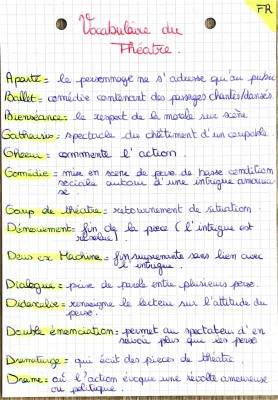 FR
Vocabulaire du
Théatre.
Aparté = le personnage ne s'adresse qu'au public
Ballet = comédie contenant des passages chantés/dansés.
Bienséance = le respect de la morale sur scène.
Catharsis = spectacle du châtiment d'un coupable.
Choeur = commente l'action.
Comédie = mise en scène de perso. de basse condition
sociale autour d'une intrigue amoureu-
se.
Coup de théâtre = retournement de situation.
Dénouement = fin de la pièce (l'intrigue est
résolue).
Deus ex Machina = fin surprenante sans lien avec
l'intrigue.
Dialogue = prise de parole entre plusieurs perso.
Didascalie = renseigne le lecteur sur l'attitude du
perso.
Double énonciation = permet au spectateur d'en
savoir plus que les perso
Dramaturge = qui écrit des pièces de théâtre.
Drame = où l'action évoque une révolte amoureuse
ou politique.